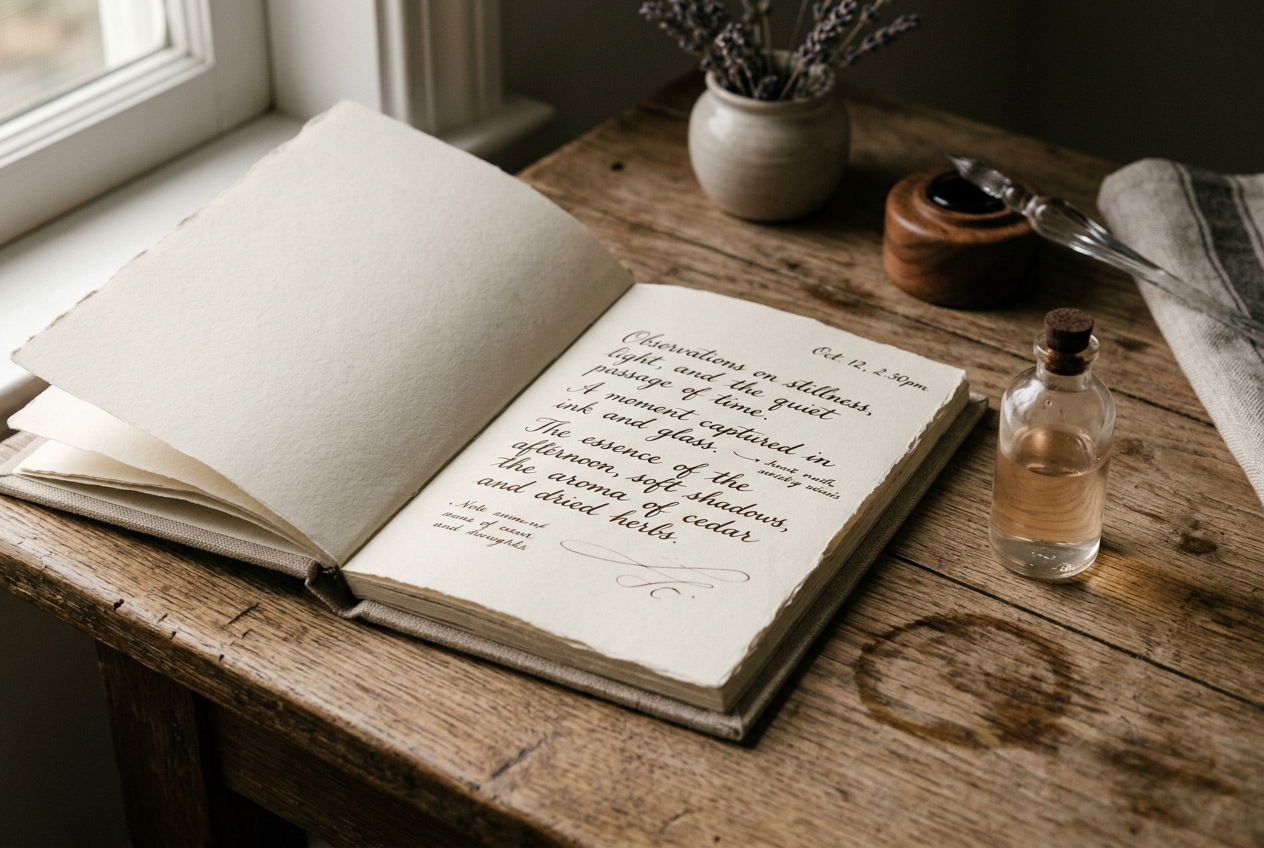 Oct. 12, 2.30pm
Observations on stillness,
light, and the quiet
passage of time.
A moment captured in
ink and glass.
The essence of the
afternoon, soft shadows,
the aroma of cedar
and dried herbs.
Note
of
and